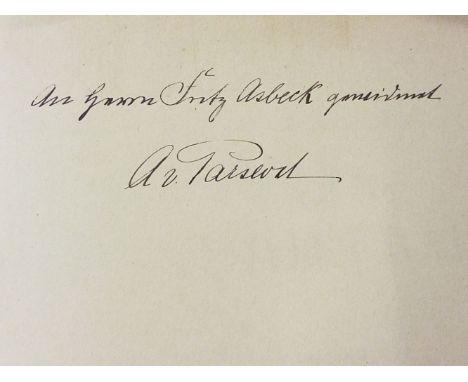 An Herrn Fritz Asbeck gewidmet
A v. Parseval